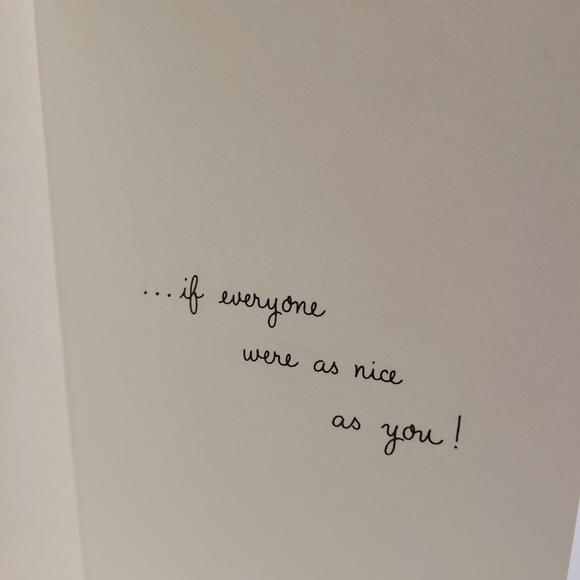 ...if everyone
were as nice
as you!